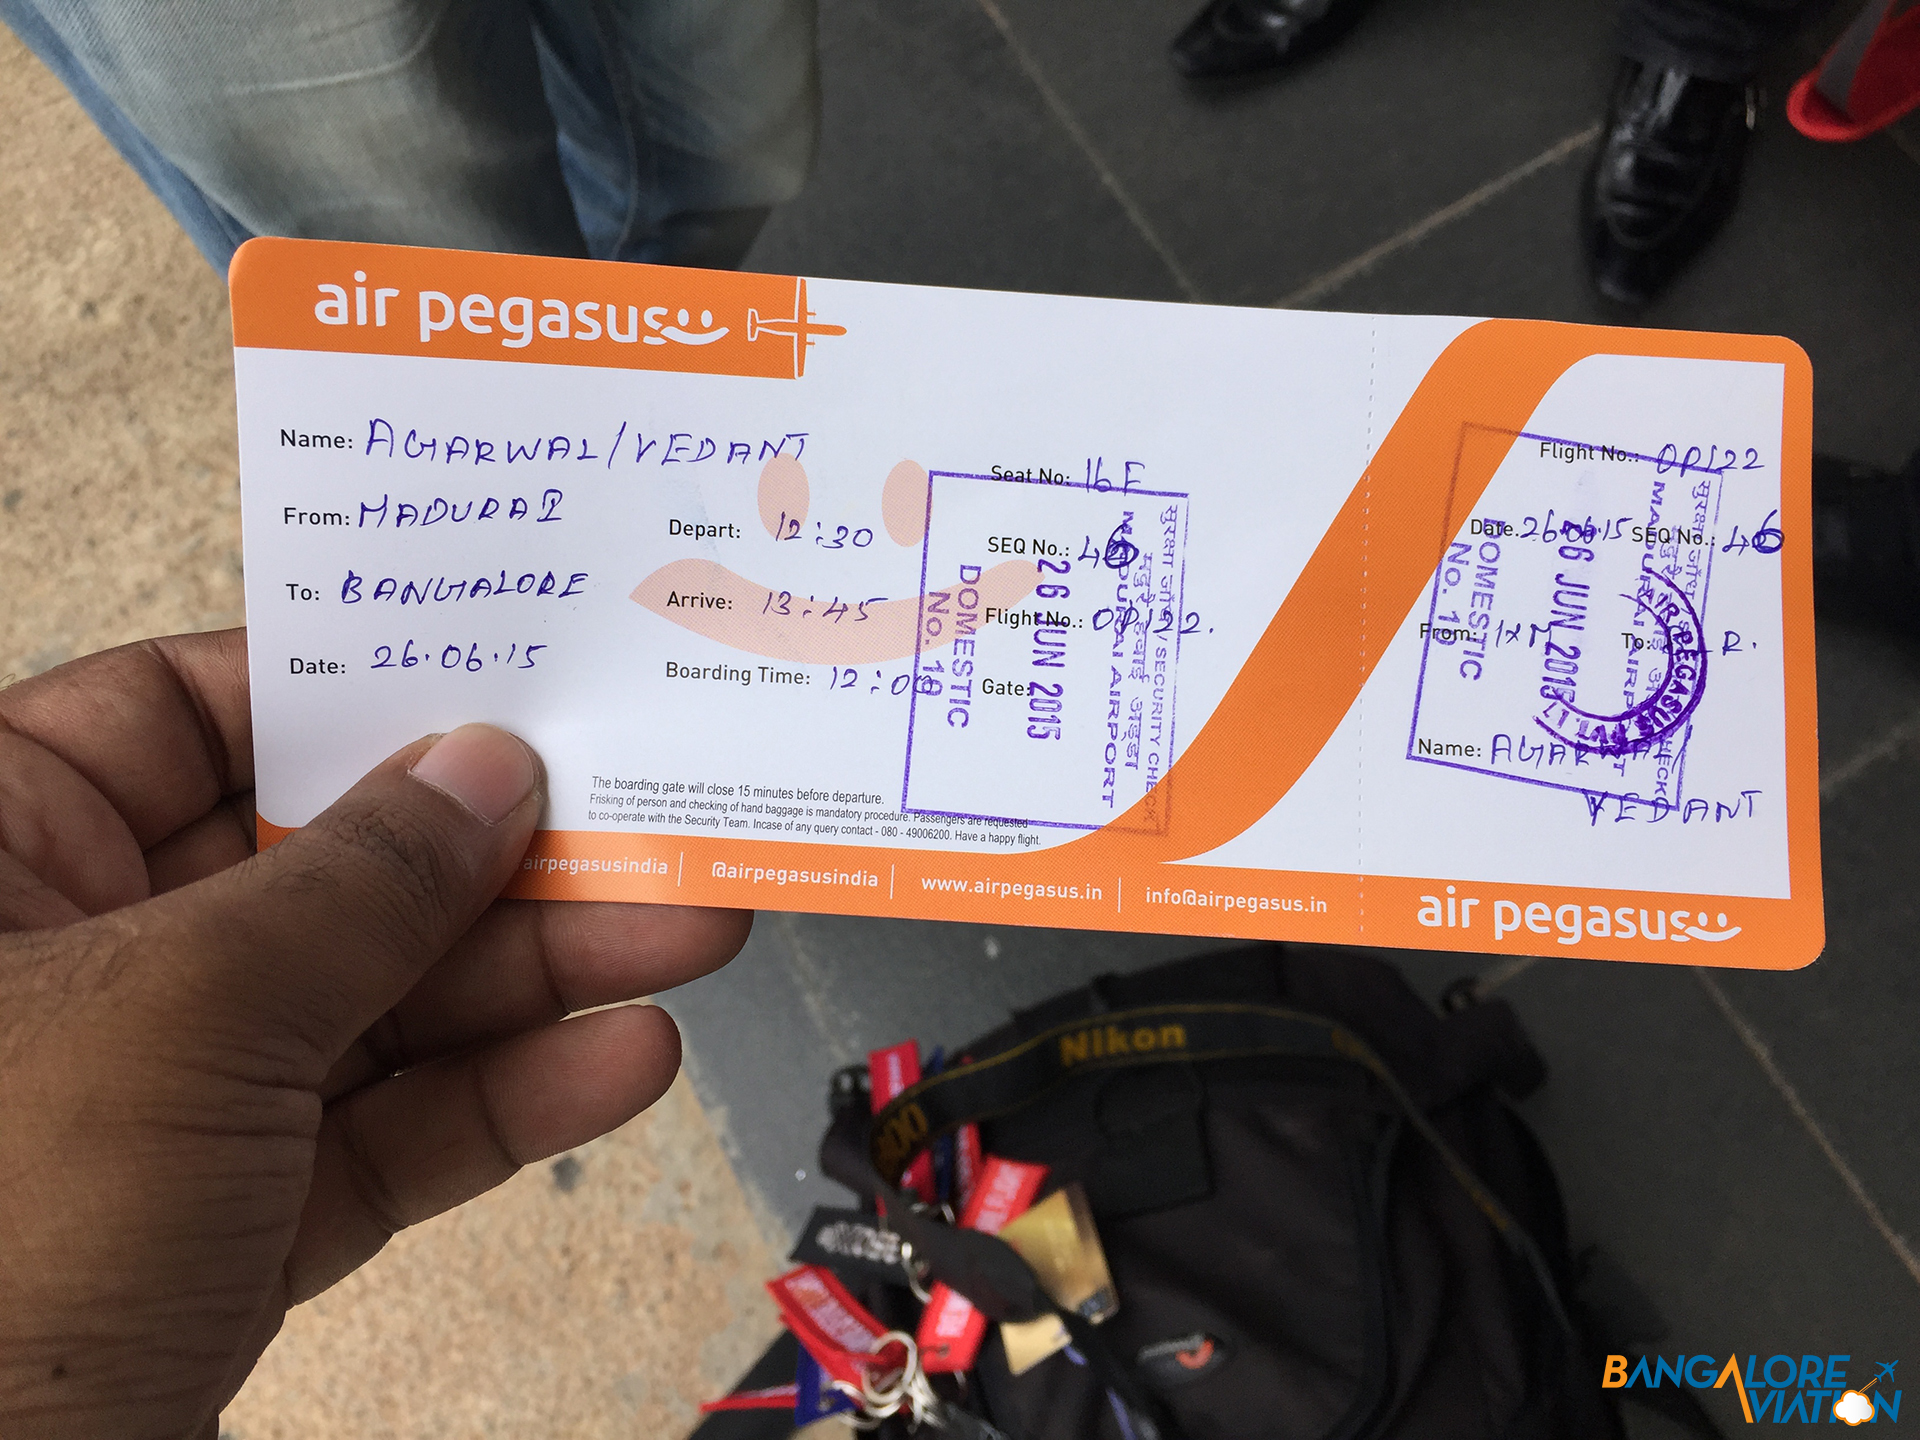 air pegasus
Name: AGARWAL/VEDANT
From: MADURAI
To: BANGALORE
Date: 26.06.15
Depart: 12:30
Arrive: 13:45
Boarding Time: 12:00
Seat No: 16F
SEQ No.: 46
Flight No.: OP122.
Gate:
सुरक्षा जाँच / SECURITY CHECK
मदुरै हवाई अड्डा
MADURAI AIRPORT
26 JUN 2015
DOMESTIC
No. 19
The boarding gate will close 15 minutes before departure.
Frisking of person and checking of hand baggage is mandatory procedure. Passengers are requested
to co-operate with the Security Team. Incase of any query contact - 080 - 49006200. Have a happy flight.
airpegasusindia
@airpegasusindia
www.airpegasus.in
info@airpegasus.in
Flight No.: OP122
Date: 26.06.15 SEQ No.: 46
From: IXM To: R.
Name: AGARWAL/
VEDANT
सुरक्षा जाँच
MADURAI AIRPORT
26 JUN 2015
DOMESTIC
No. 19
AIR PEGASUS PVT.
air pegasus
Nikon
BANGALORE
AVIATION